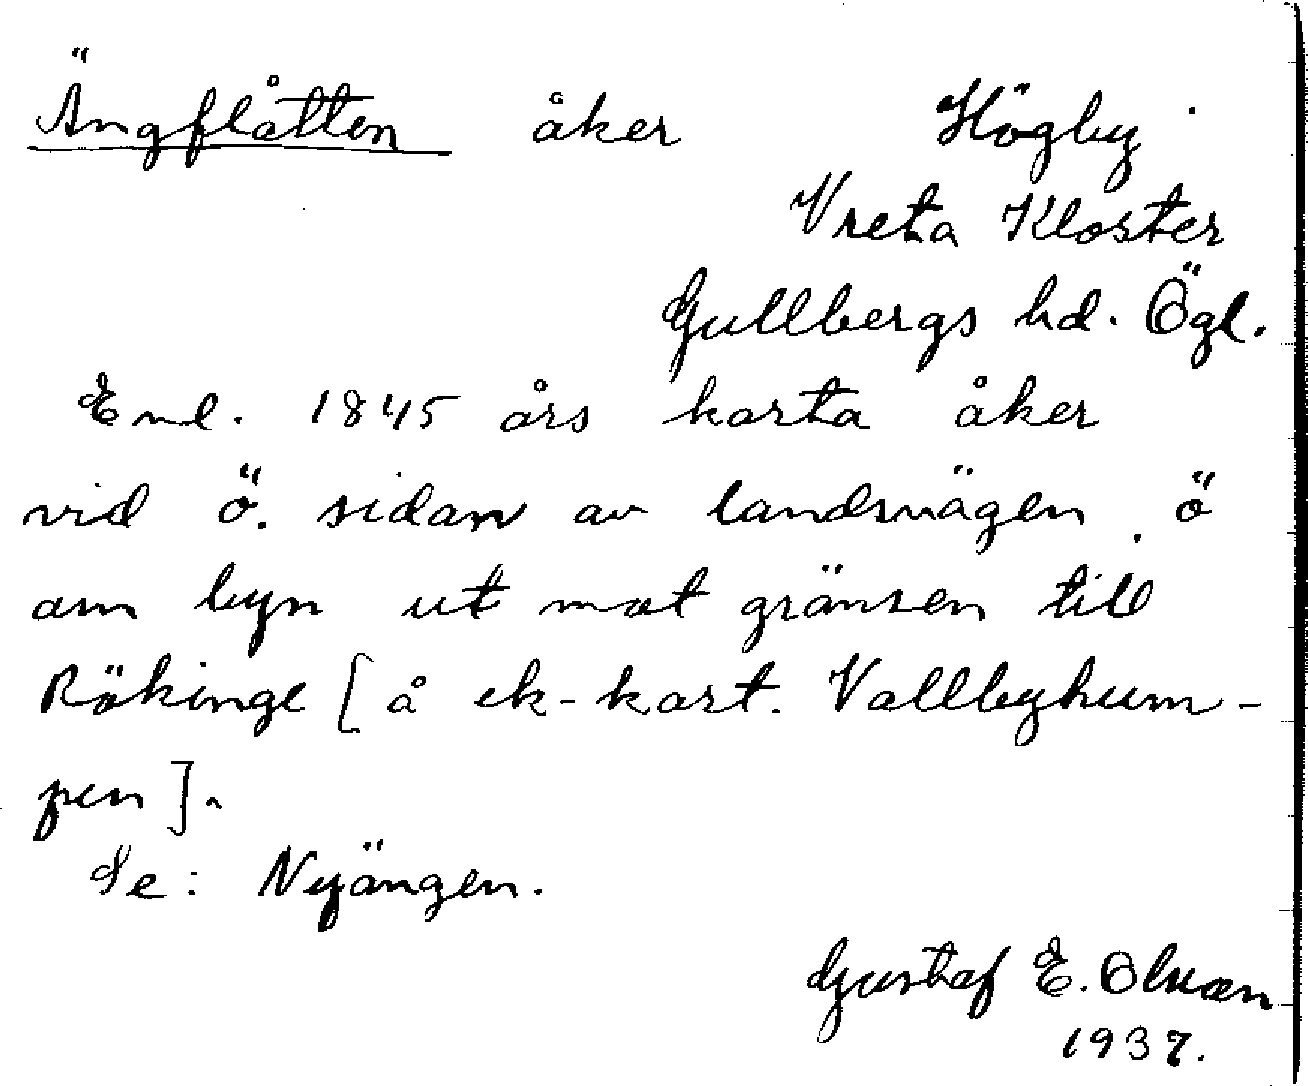 Ängflåtten åker Högby
Vreta Kloster
Gullbergs hd. Ögl.
Enl. 1845 års karta åker
vid ö. sidan av landsvägen ö
om byn ut mot gränsen till
Rökinge [å ek-kart. Vallbyhum-
pen].
Se: Nyängen.
Gustaf E. Olsson
1937.